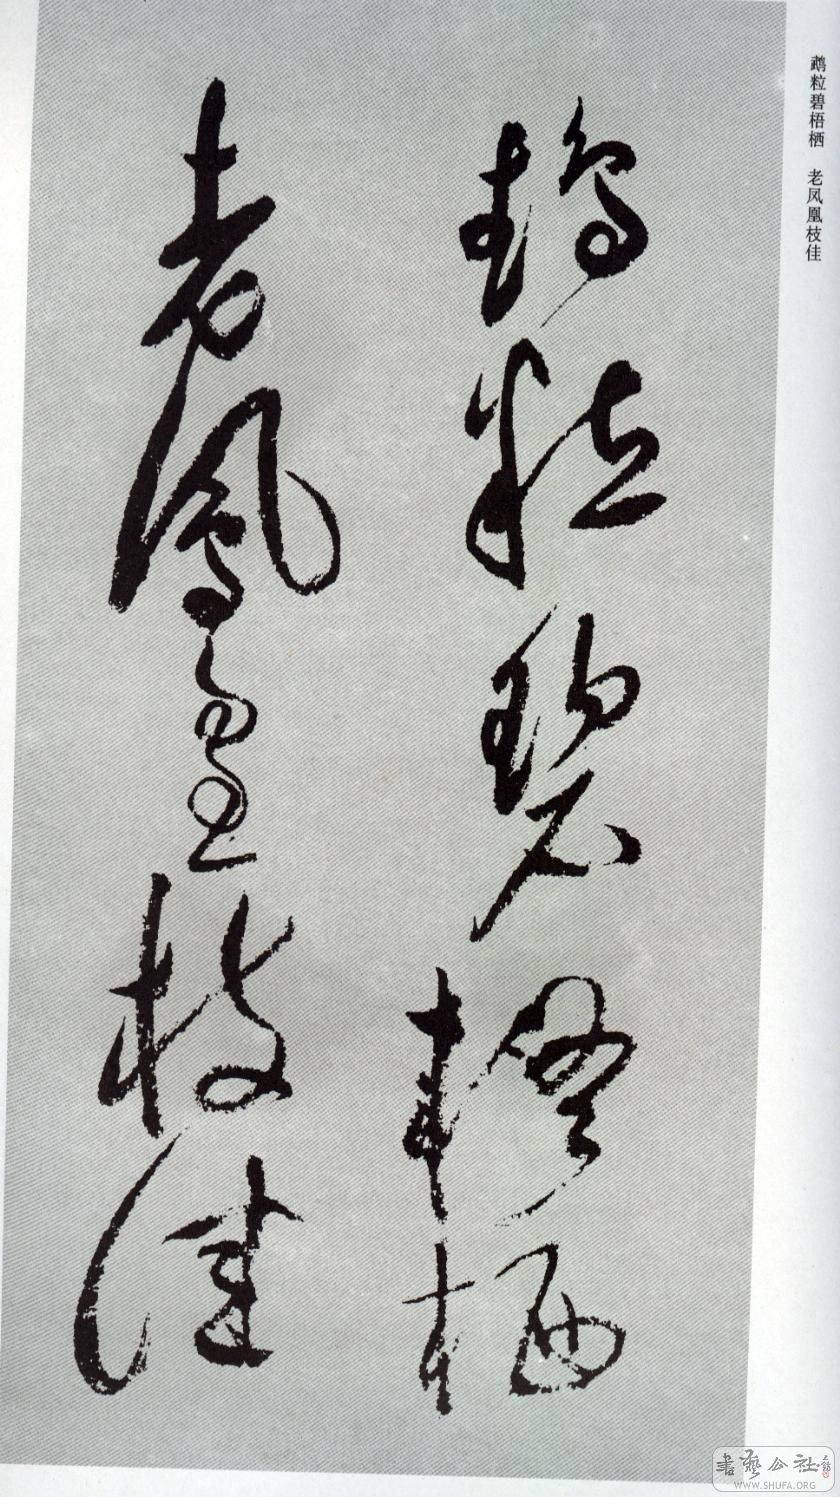 鹉粒碧梧栖 老凤凰枝佳
鹉粒碧梧栖
老鳳凰枝佳
書藝公社
WWW.SHUFA.ORG